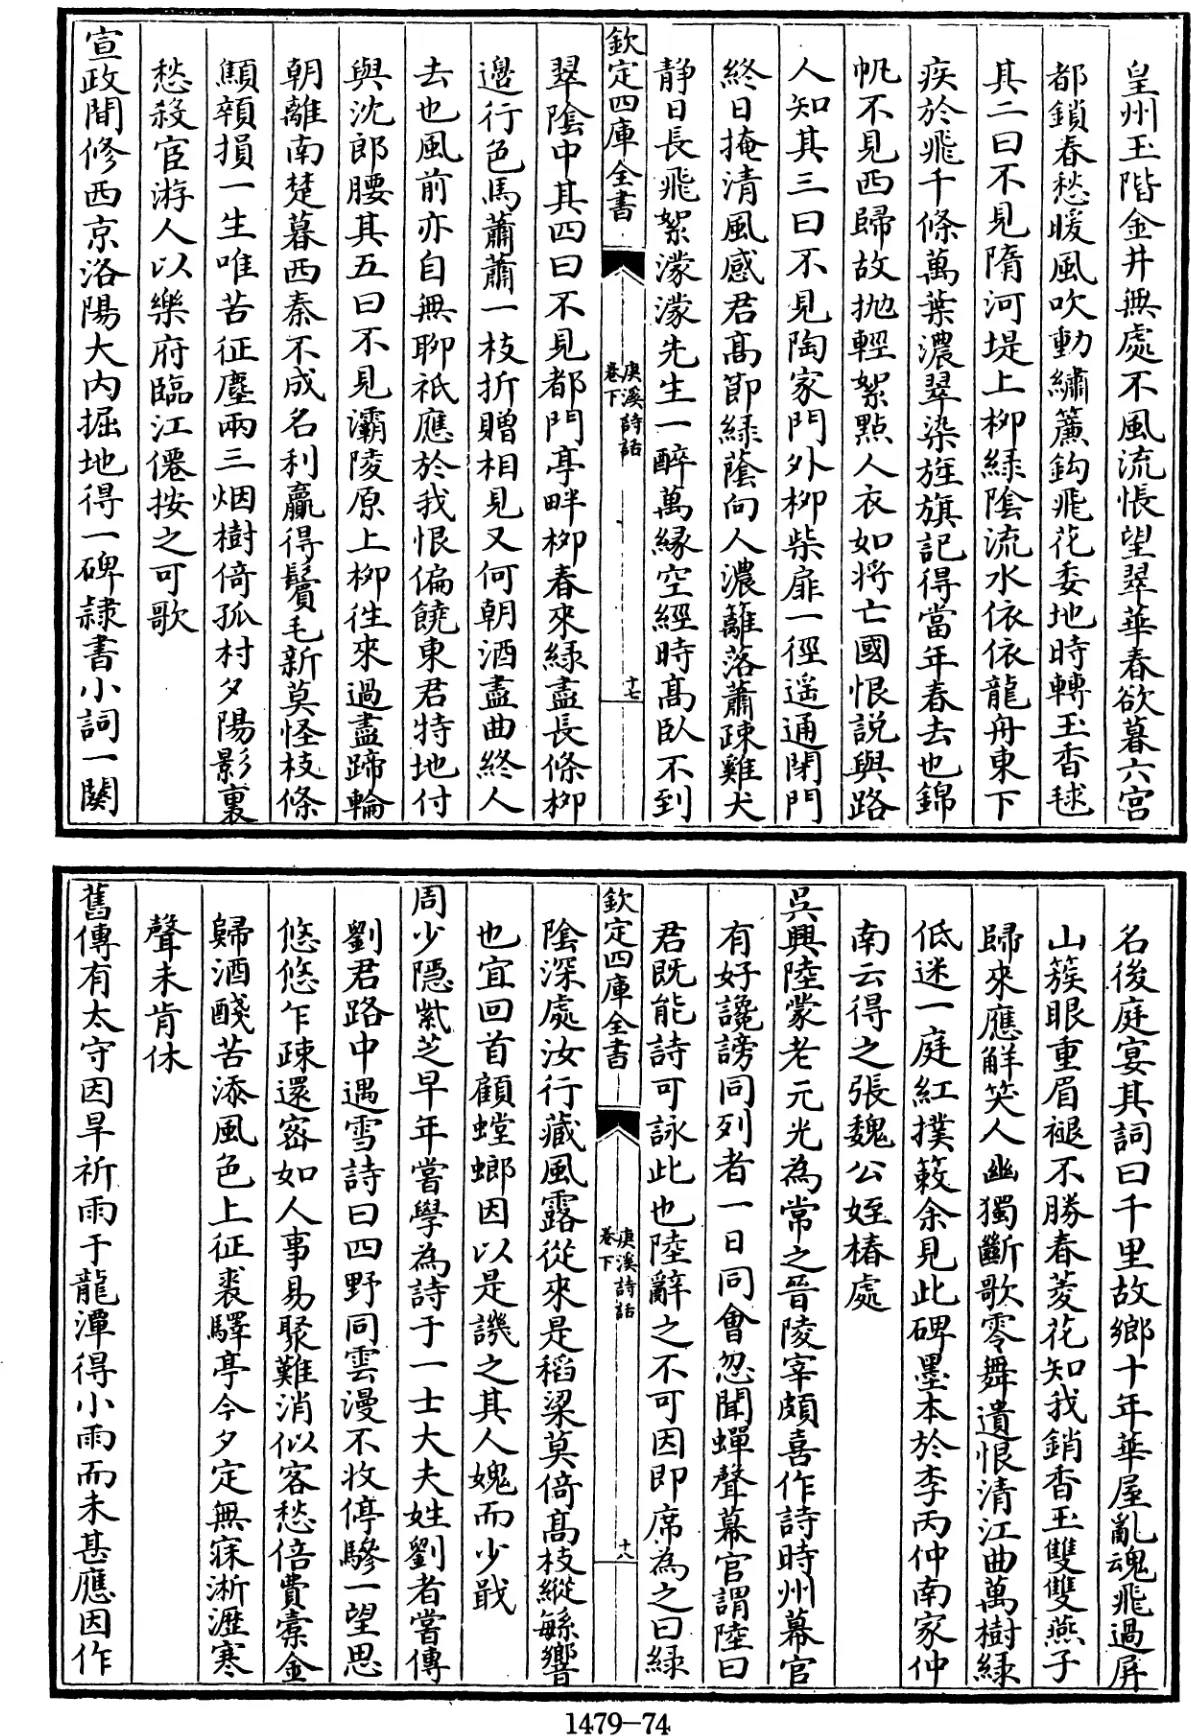 皇州玉階金井無處不風流悵望翠華春欲暮六宮
都鎖春愁暖風吹動繡簾鈎飛花委地時轉玉香毬
其二曰不見隋河堤上柳緑陰流水依依龍舟東下
疾於飛千條萬葉濃翠染旌旗記得當年春去也錦
帆不見西歸故拋輕絮㸃人衣如將亡國恨説與路
人知其三曰不見陶家門外柳柴扉一徑遥通閉門
終日掩清風感君髙節緑蔭向人濃籬落蕭疎雞犬
静日長飛絮濛濛先生一醉萬縁空經時髙臥不到
欽定四庫全書
庚溪詩話
卷下
十七
翠陰中其四曰不見都門亭畔柳春來緑盡長條柳
邉行色馬蕭蕭一枝折贈相見又何朝酒盡曲終人
去也風前亦自無聊祇應於我恨偏饒東君特地付
與沈郎腰其五曰不見灞陵原上柳往來過盡蹄輪
朝離南楚暮西秦不成名利贏得鬢毛新莫怪枝條
顦顇損一生唯苦征塵兩三烟樹倚孤村夕陽影裏
愁殺宦游人以樂府臨江僊按之可歌
宣政間修西京洛陽大内掘地得一碑隷書小詞一闋
名後庭宴其詞曰千里故鄉十年華屋亂魂飛過屏
山簇眼重眉褪不勝春菱花知我銷香玉雙雙燕子
歸來應解笑人幽獨斷歌零舞遺恨清江曲萬樹緑
低迷一庭紅撲簌余見此碑墨本於李丙仲南家仲
南云得之張魏公姪椿處
吳興陸蒙老元光為常之晉陵宰頗喜作詩時州幕官
有好讒謗同列者一日同會忽聞蟬聲幕官謂陸曰
君既能詩可詠此也陸辭之不可因即席為之曰緑
欽定四庫全書
庚溪詩話
卷下
十八
陰深處汝行藏風露從來是稻粱莫倚髙枝縱繁響
也宜回首顧螳螂因以是譏之其人媿而少戢
周少隱紫芝早年嘗學為詩于一士大夫姓劉者嘗傳
劉君路中遇雪詩曰四野同雲漫不收停驂一望思
悠悠乍疎還密如人事易聚難消似客愁倍費橐金
歸酒醆苦添風色上征裘驛亭今夕定無寐淅瀝寒
聲未肯休
舊傳有太守因旱祈雨于龍潭得小雨而未甚應因作
1479—74